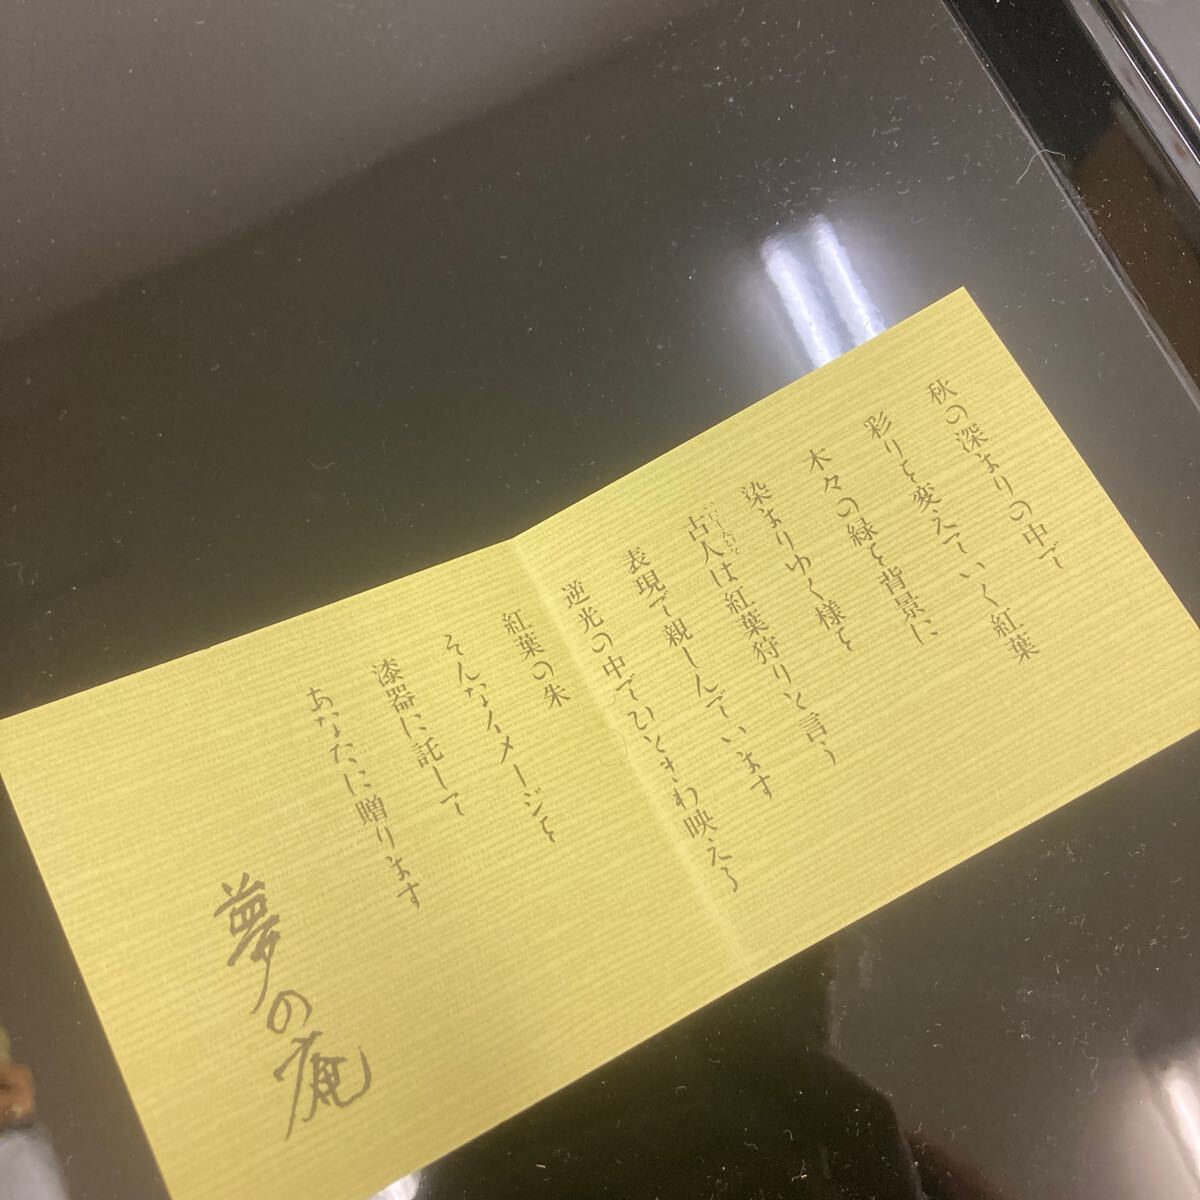 秋の深まりの中で
彩りを変えていく紅葉
木々の緑を背景に
染まりゆく様を
古人は紅葉狩りと言う
いにしえびと
表現で親しんでいます
逆光の中でひときわ映える
紅葉の朱
そんなイメージを
漆器に託して
あなたに贈ります
夢の庵